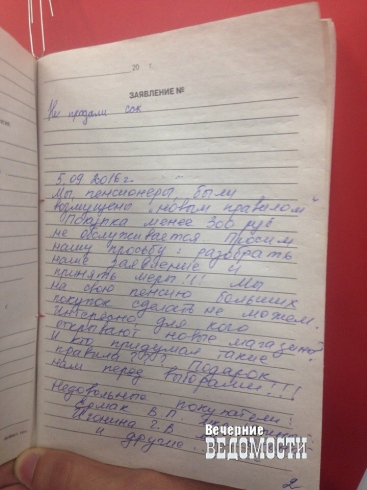 20 г.
ЗАЯВЛЕНИЕ №
Не продали сок
5.09 2016 г.
Мы, пенсионеры, были
возмущены "новым правилом"
Покупка менее 300 руб
не обслуживается. Просим
нашу просьбу: разобрать
наше заявление и
принять меры!!! Мы
на свою пенсию больших
покупок сделать не можем.
Интересно для кого
открывают новые магазины?
И кто придумал такие
правила??? Подарок
нам перед выборами!!!
Недовольные покупатели:
Ермак В П
Игонина Г. В
и другие.
Вечерние
ВЕДОМОСТИ
2